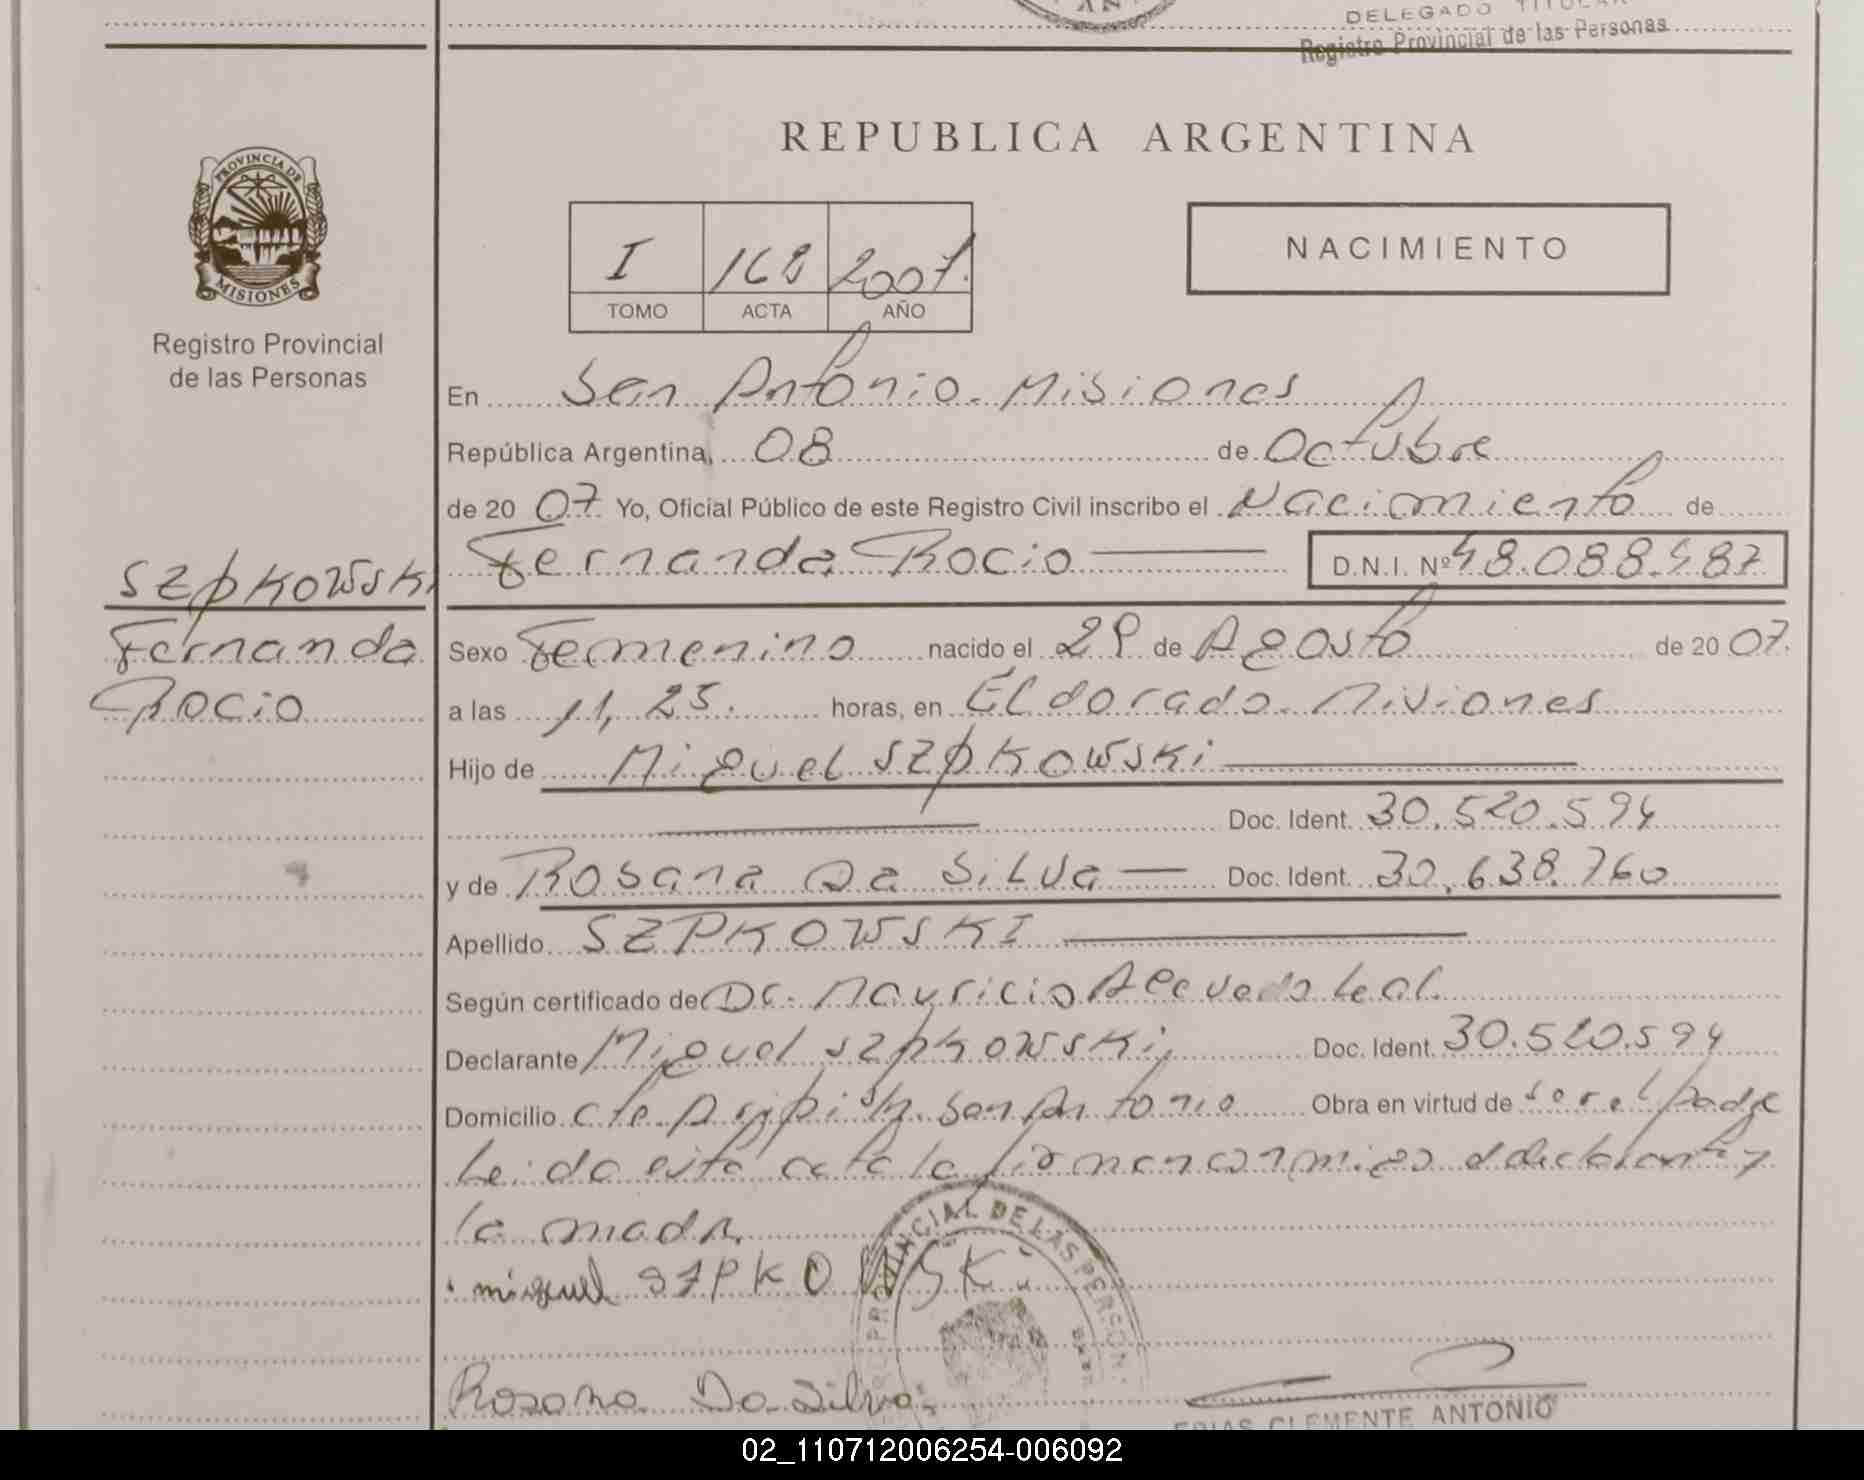 DELEGADO TITULAR
Registro Provincial de las Personas
REPUBLICA ARGENTINA
PROVINCIA DE
MISIONES
I 168 2007.
TOMO ACTA AÑO
NACIMIENTO
Registro Provincial
de las Personas
En San Antonio. Misiones
República Argentina, 08 de Octubre
de 20 07 Yo, Oficial Público de este Registro Civil inscribo el Nacimiento de
SZPKOWSKI
Fernanda Rocio D.N.I. Nº 48.088.487
Fernanda
Rocio
Sexo Femenino nacido el 29 de Agosto de 20 07.
a las 11,25. horas, en Eldorado. Misiones
Hijo de Miguel SZPKOWSKI
Doc. Ident. 30.520.594
y de Rosana Da Silva Doc. Ident. 30.638.760
Apellido SZPKOWSKI
Según certificado de Dr. Mauricio Acevedo Leal.
Declarante Miguel SZPKOWSKI, Doc. Ident. 30.520.594
Domicilio San Antonio Obra en virtud de ser el padre
Leida esta acta la firman conmigo el declarante y
la madre
miguel SZPKOWSKI
PROVINCIAL DE LAS PERSON
Rosana Da Silva
ERIAS CLEMENTE ANTONIO
02_110712006254-006092